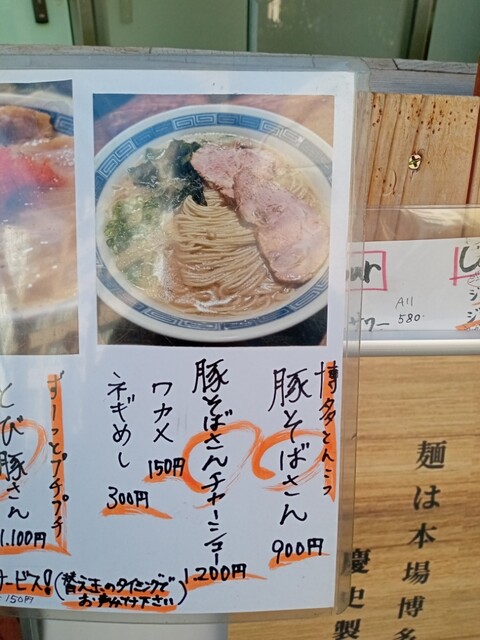 博多とんこつ
豚そばさん
900円
豚そばさんチャーシュー
1.200円
ワカメ
150円
ネギめし
300円
ずーっとプチプチ
とび豚さん
1.100円
サービス!(替え玉のタイミングで
お声がけ下さい)
150円
our
サワー
All
580-
麺は本場博多
慶史製